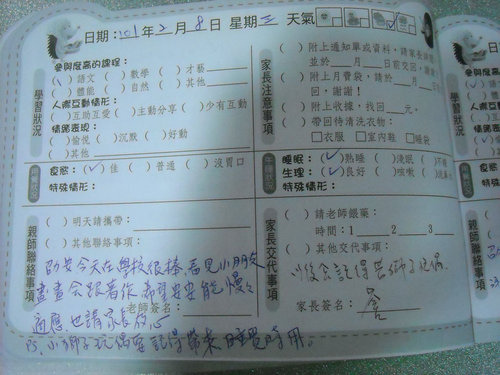 日期：101年2月8日 星期三 天氣
學習狀況
參與度高的課程：
(✓)語文 ( )數學 ( )才藝
( )體能 ( )自然 ( )其他
人際互動情形：
( )互助互愛 ( )主動分享 ( )少有互動
情緒表現：
( )愉悅 ( )沉默 ( )好動
( )其他
食慾：(✓)佳 ( )普通 ( )沒胃口
特殊情形：
親師聯絡事項
( )明天請攜帶：
( )其他聯絡事項：
安今天在學校很棒，看見小朋友
畫畫會跟著你，希望安安能慢慢
適應，也請家長放心
老師簽名：
PS. 小獅子玩偶要記得帶來睡覺時用。
家長注意事項
( )附上通知單或資料，請家長
並於 月 日前交回，謝
( )附上月費袋，請於 月
回，謝謝！
( )附上收據，找回 元。
( )帶回待清洗衣物：
□衣服 □室內鞋 □睡袋
睡眠：(✓)熟睡 ( )淺眠 ( )不
生理：(✓)良好 ( )咳嗽 ( )流鼻
特殊情形：
家長交代事項
( )請老師餵藥：
時間：1 2 3
( )其他交代事項：
以後會記得帶獅子玩偶
家長簽名：